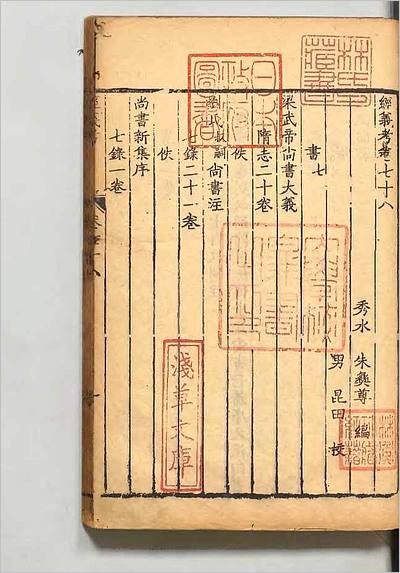 經義考卷七十八
秀水 朱彝尊 編
男 昆田 校
書七
梁武帝尚書大義
隋志二十卷
佚
劉氏叔嗣尚書注
七錄二十一卷
佚
尚書新集序
七錄一卷
林氏藏書
日本政府圖書
淺草文庫